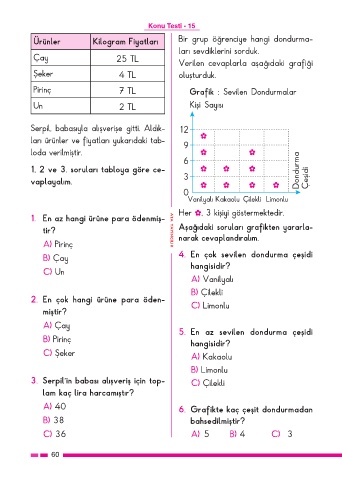 Konu Testi - 15
Ürünler Kilogram Fiyatları
Çay 25 TL
Şeker 4 TL
Pirinç 7 TL
Un 2 TL
Serpil, babasıyla alışverişe gitti. Aldık-
ları ürünler ve fiyatları yukarıdaki tab-
loda verilmiştir.
1, 2 ve 3. soruları tabloya göre ce-
vaplayalım.
1. En az hangi ürüne para ödenmiş-
tir?
A) Pirinç
B) Çay
C) Un
2. En çok hangi ürüne para öden-
miştir?
A) Çay
B) Pirinç
C) Şeker
3. Serpil'in babası alışveriş için top-
lam kaç lira harcamıştır?
A) 40
B) 38
C) 36
Bir grup öğrenciye hangi dondurma-
ları sevdiklerini sorduk.
Verilen cevaplarla aşağıdaki grafiği
oluşturduk.
Grafik : Sevilen Dondurmalar
Kişi Sayısı
12
9
6
3
0
Vanilyalı Kakaolu Çilekli Limonlu
Dondurma
Çeşidi
Her , 3 kişiyi göstermektedir.
Aşağıdaki soruları grafikten yararla-
narak cevaplandıralım.
4. En çok sevilen dondurma çeşidi
hangisidir?
A) Vanilyalı
B) Çilekli
C) Limonlu
5. En az sevilen dondurma çeşidi
hangisidir?
A) Kakaolu
B) Limonlu
C) Çilekli
6. Grafikte kaç çeşit dondurmadan
bahsedilmiştir?
A) 5 B) 4 C) 3
60